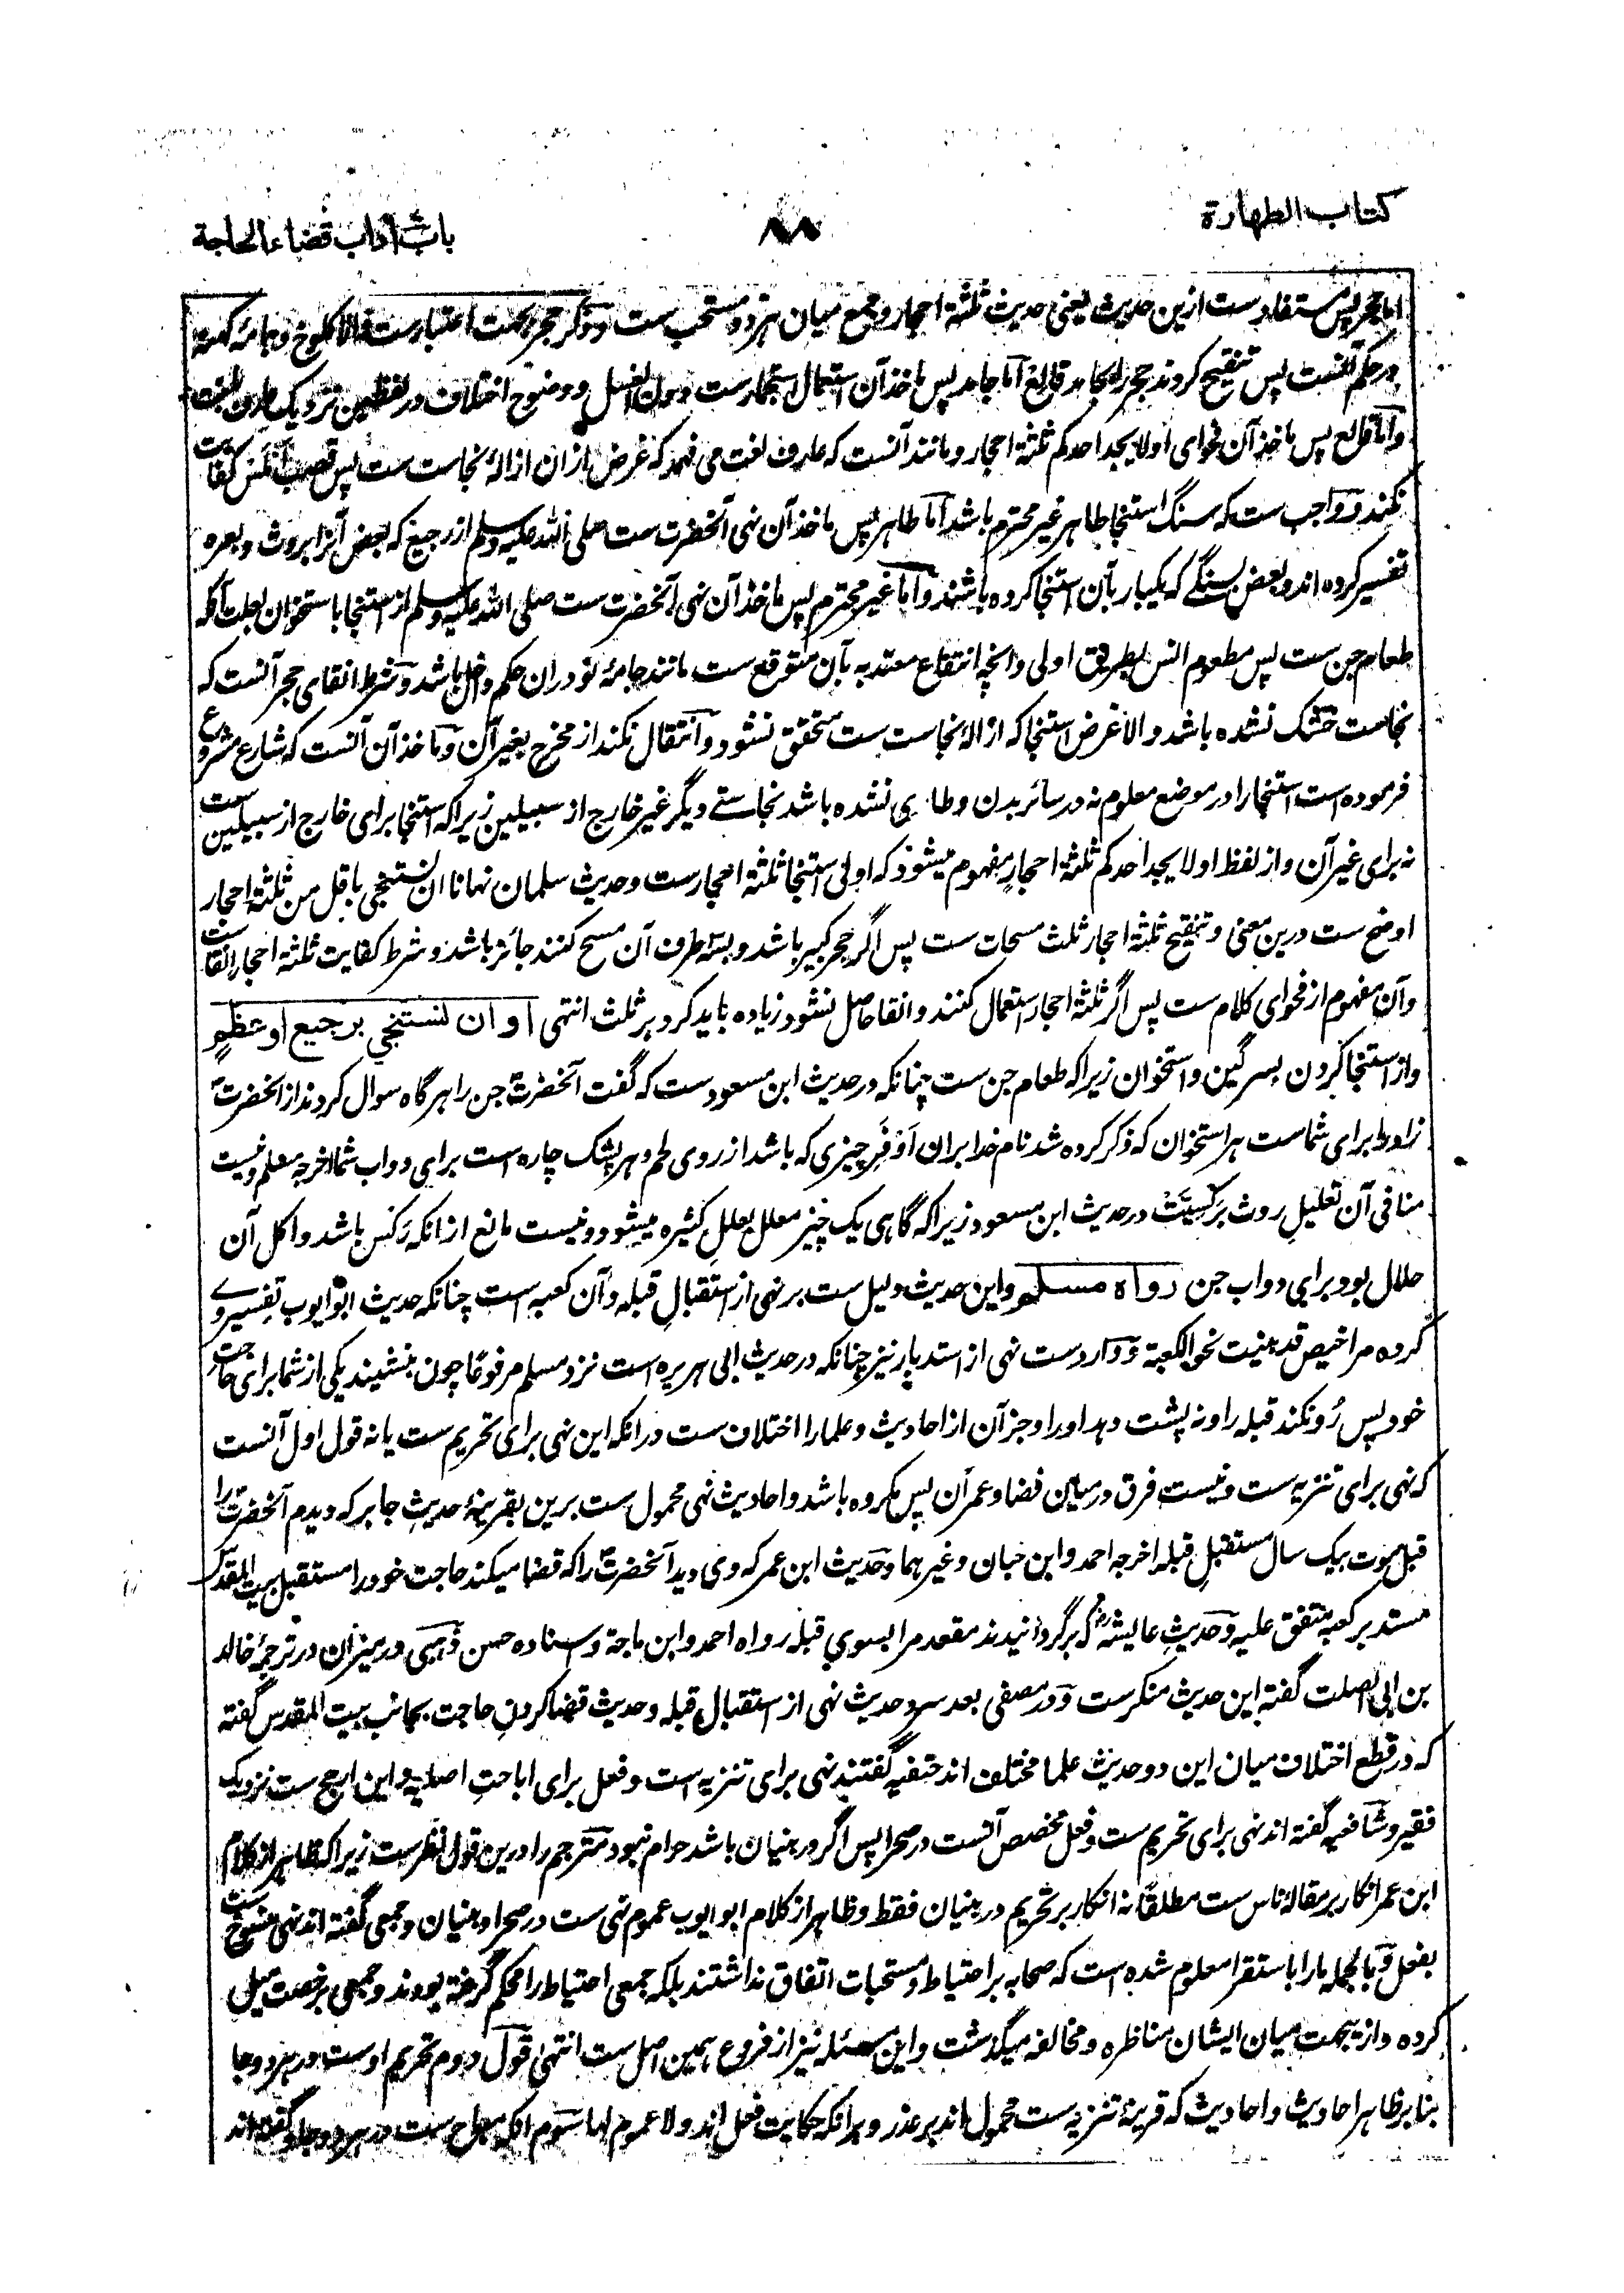 کتاب الطهارة
۸۸
باب آداب قضاء الحاجة
اما حجر پس مستفاد ست ازین حدیث یعنی حدیث ثلثة احجار و جمع میان هر دو مستحب ست و ذکر حجر بجهت اعتبار ست والا کلوخ و جامۀ کهنه
در حکم آنست پس تنقیح کردند حجر را بجامد قالع اما جامد پس ماخذ آن استعمال استجمار ست دون الغسل و وضوح اختلاف در لفظین نزدیک
واما قالع پس ماخذ آن فحوای اولا یجد احدکم ثلثة احجار و مانند آنست که عارف لغت می فهمد که غرض ازان ازالۀ نجاست ست پس قصب املس کفایت
نکند و واجب ست که سنگ استنجا طاهر غیر محترم باشد اما طاهر پس ماخذ آن نهی آنحضرت ست صلی الله علیه وسلم از رجیع که بعض آنرا بروث و بعره
تفسیر کرده اند و بعض بسنگے که یکبار بآن استنجا کرده باشند و اما غیر محترم پس ماخذ آن نهی آنحضرت ست صلی الله علیه وسلم از استنجا باستخوان بعلت آنکه
طعام جن ست پس مطعوم انس بطریق اولی و انچه انتفاع معتد به بآن متوقع ست مانند جامۀ نو دران حکم داخل باشد و شرط انقای حجر آنست که
نجاست خشک نشده باشد والا غرض استنجا که ازالۀ نجاست ست متحقق نشود و انتقال نکند از مخرج بغیر آن و ماخذ آن آنست که شارع مشروع
فرموده است استنجا را در موضع معلوم نه در سائر بدن و طاری نشده باشد نجاستے دیگر غیر خارج از سبیلین زیراکه استنجا برای خارج از سبیلین ست
نه برای غیر آن و از لفظ اولا یجد احدکم ثلثة احجار مفهوم میشود که اولی استنجا ثلثة احجار ست و حدیث سلمان نهانا ان نستنجی باقل من ثلثة احجار
اوضح ست درین معنی و تنقیح ثلثة احجار ثلث مسحات ست پس اگر حجر کبیر باشد و بسه طرف آن مسح کنند جائز باشد و شرط کفایت ثلثة احجار انقا ست
و آن مفهوم از فحوای کلام ست پس اگر ثلثة احجار استعمال کنند و انقا حاصل نشود زیاده باید کرد بر ثلث انتهی او ان نستنجي برجیع او عظم
و از استنجا کردن بسرگین و استخوان زیراکه طعام جن ست چنانکه در حدیث ابن مسعود ست که گفت آنحضرت جن را هرگاه سوال کردند از آنحضرت
زاد را برای شماست هر استخوان که ذکر کرده شد نام خدا بران اوفر چیزی که باشد از روی لحم و هر پشک چاره است برای دواب شما اخرجه مسلم و نیست
منافی آن تعلیل روث برکسیت در حدیث ابن مسعود زیراکه گاهی یک چیز معلل بعلل کثیره میشود و نیست مانع از انکه رکس باشد و اکل آن
حلال بود برای دواب جن رواه مسلم و این حدیث دلیل ست بر نهی از استقبال قبله و آن کعبه است چنانکه حدیث ابو ایوب تفسیر وے
کرده مراحیض قد بنیت نحو الکعبة و وارد ست نهی از استدبار نیز چنانکه در حدیث ابی هریره است نزد مسلم مرفوعًا چون بنشیند یکی از شما برای حاجت
خود پس رو نکند قبله را و نه پشت دهد او را و جز آن از احادیث و علما را اختلاف ست درانکه این نهی برای تحریم ست یا نه قول اول آنست
که نهی برای تنزیه ست و نیست فرق درمیان فضا و عمران پس مکروه باشد و احادیث نهی محمول ست برین بقرینۀ حدیث جابر که دیدم آنحضرت را
قبل موت بیک سال مستقبل قبله اخرجه احمد و ابن حبان و غیرهما و حدیث ابن عمر که وی دید آنحضرت را که قضا میکند حاجت خود را مستقبل بیت المقدس
مستدبر کعبه متفق علیه و حدیث عایشه که برگردانیدند مقعد مرا بسوي قبله رواه احمد و ابن ماجة و اسناده حسن ذهبی در میزان در ترجمۀ خالد
بن ابی الصلت گفته این حدیث منکر ست و در مصفی بعد سرد حدیث نهی از استقبال قبله و حدیث قضا کردن حاجت بجانب بیت المقدس گفته
که در قطع اختلاف میان این دو حدیث علما مختلف اند حنفیه گفتند نهی برای تنزیه است و فعل برای اباحت اصلیه و این ارجح ست نزدیک
فقیر و شافعیه گفته اند نهی برای تحریم ست و فعل مخصص آنست در صحرا پس اگر در بنیان باشد حرام نبود مترجم را درین قول نظر ست زیراکه ظاهر از کلام
ابن عمر انکار بر مقالۀ ناس ست مطلقًا نه انکار بر تحریم در بنیان فقط و ظاهر از کلام ابو ایوب عموم نهی ست در صحرا و بنیان و جمعی گفته اند نهی منسوخ ست
بفعل و بالجمله ما را باستقرا معلوم شده است که صحابه بر احتیاط و مستحبات اتفاق نداشتند بلکه جمعی احتیاط را محکم گرفته بودند و جمعی برخصت میل
کرده و ازیجهت میان ایشان مناظره و مخالفه میگذشت و این مسئله نیز از فروع همین اصل ست انتهی قول دوم تحریم اوست در هر دو جا
بنا بر ظاهر احادیث و احادیث که قرینۀ تنزیه ست محمول اند بر عذر و برانکه حکایت فعل اند ولا عموم لها سوم آنکه مباح ست در هر دو جا و گفته اند